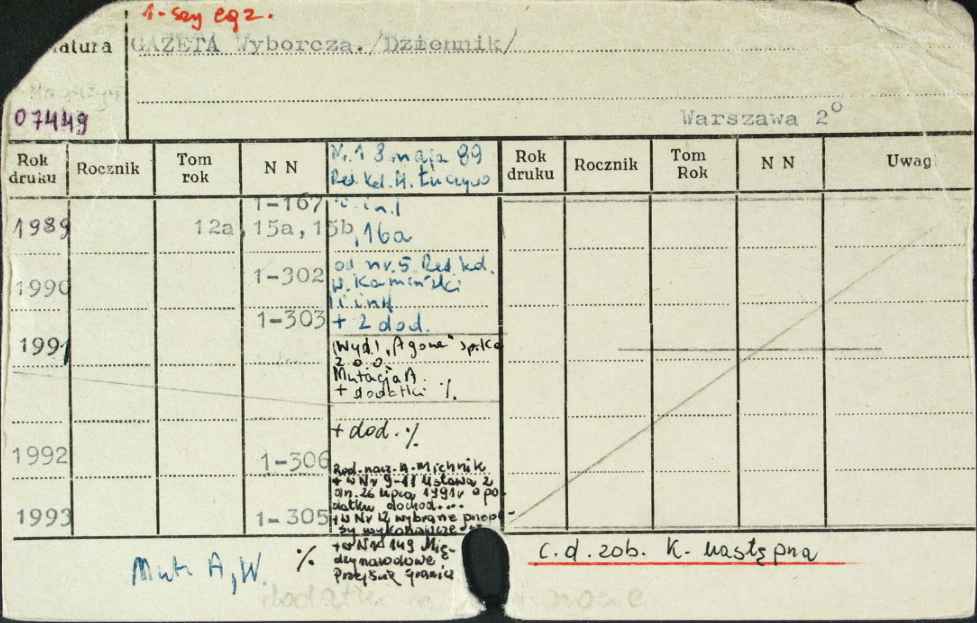 1-szy egz.
atura GAZETA Wyborcza. /Dziennik/
07449
Warszawa 2°
Rok druku Rocznik Tom rok N N Nr. 1 8 maja 89 Rok druku Rocznik Tom Rok N N Uwag
Red. kol. H. Łuczywo
1989 1-167 i in.
12a, 15a, 15b, 16a
1990 1-302 od nr. 5 Red. kol.
W. Kamiński
i inn.
1991 1-303 + 2 dod.
(Wyd.) „Agora" sp-ka
z o.o.
Mutacja A
+ dodatki %
+ dod. %
1992 1-306 Red. nacz. A. Michnik
+ w Nr 9-11 Ustawa z
dn. 26 lipca 1991r o po-
datku dochod....
1993 1-305 + w Nr 12 wybrane przepi-
sy wykonawcze
% + w Nr 149 Mię-
dzynarodowe
Przejścia graniczn
Mut. A, W.
c.d. zob. K. następna